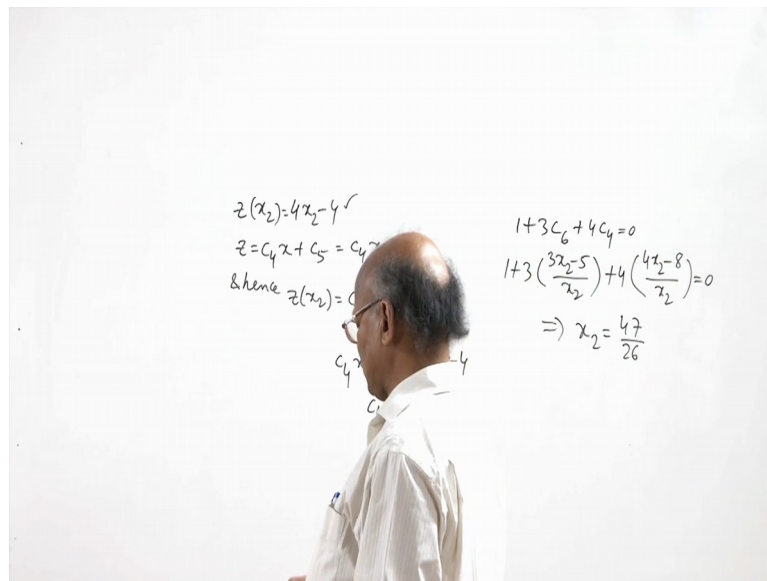 z(x₂)=4x₂-4✓
z=c₄x+c₅=c₄
& hence z(x₂)=
c₄
-4
1+3c₆+4c₄=0
1+3((3x₂-5)/x₂)+4((4x₂-8)/x₂)=0
⇒ x₂=47/26